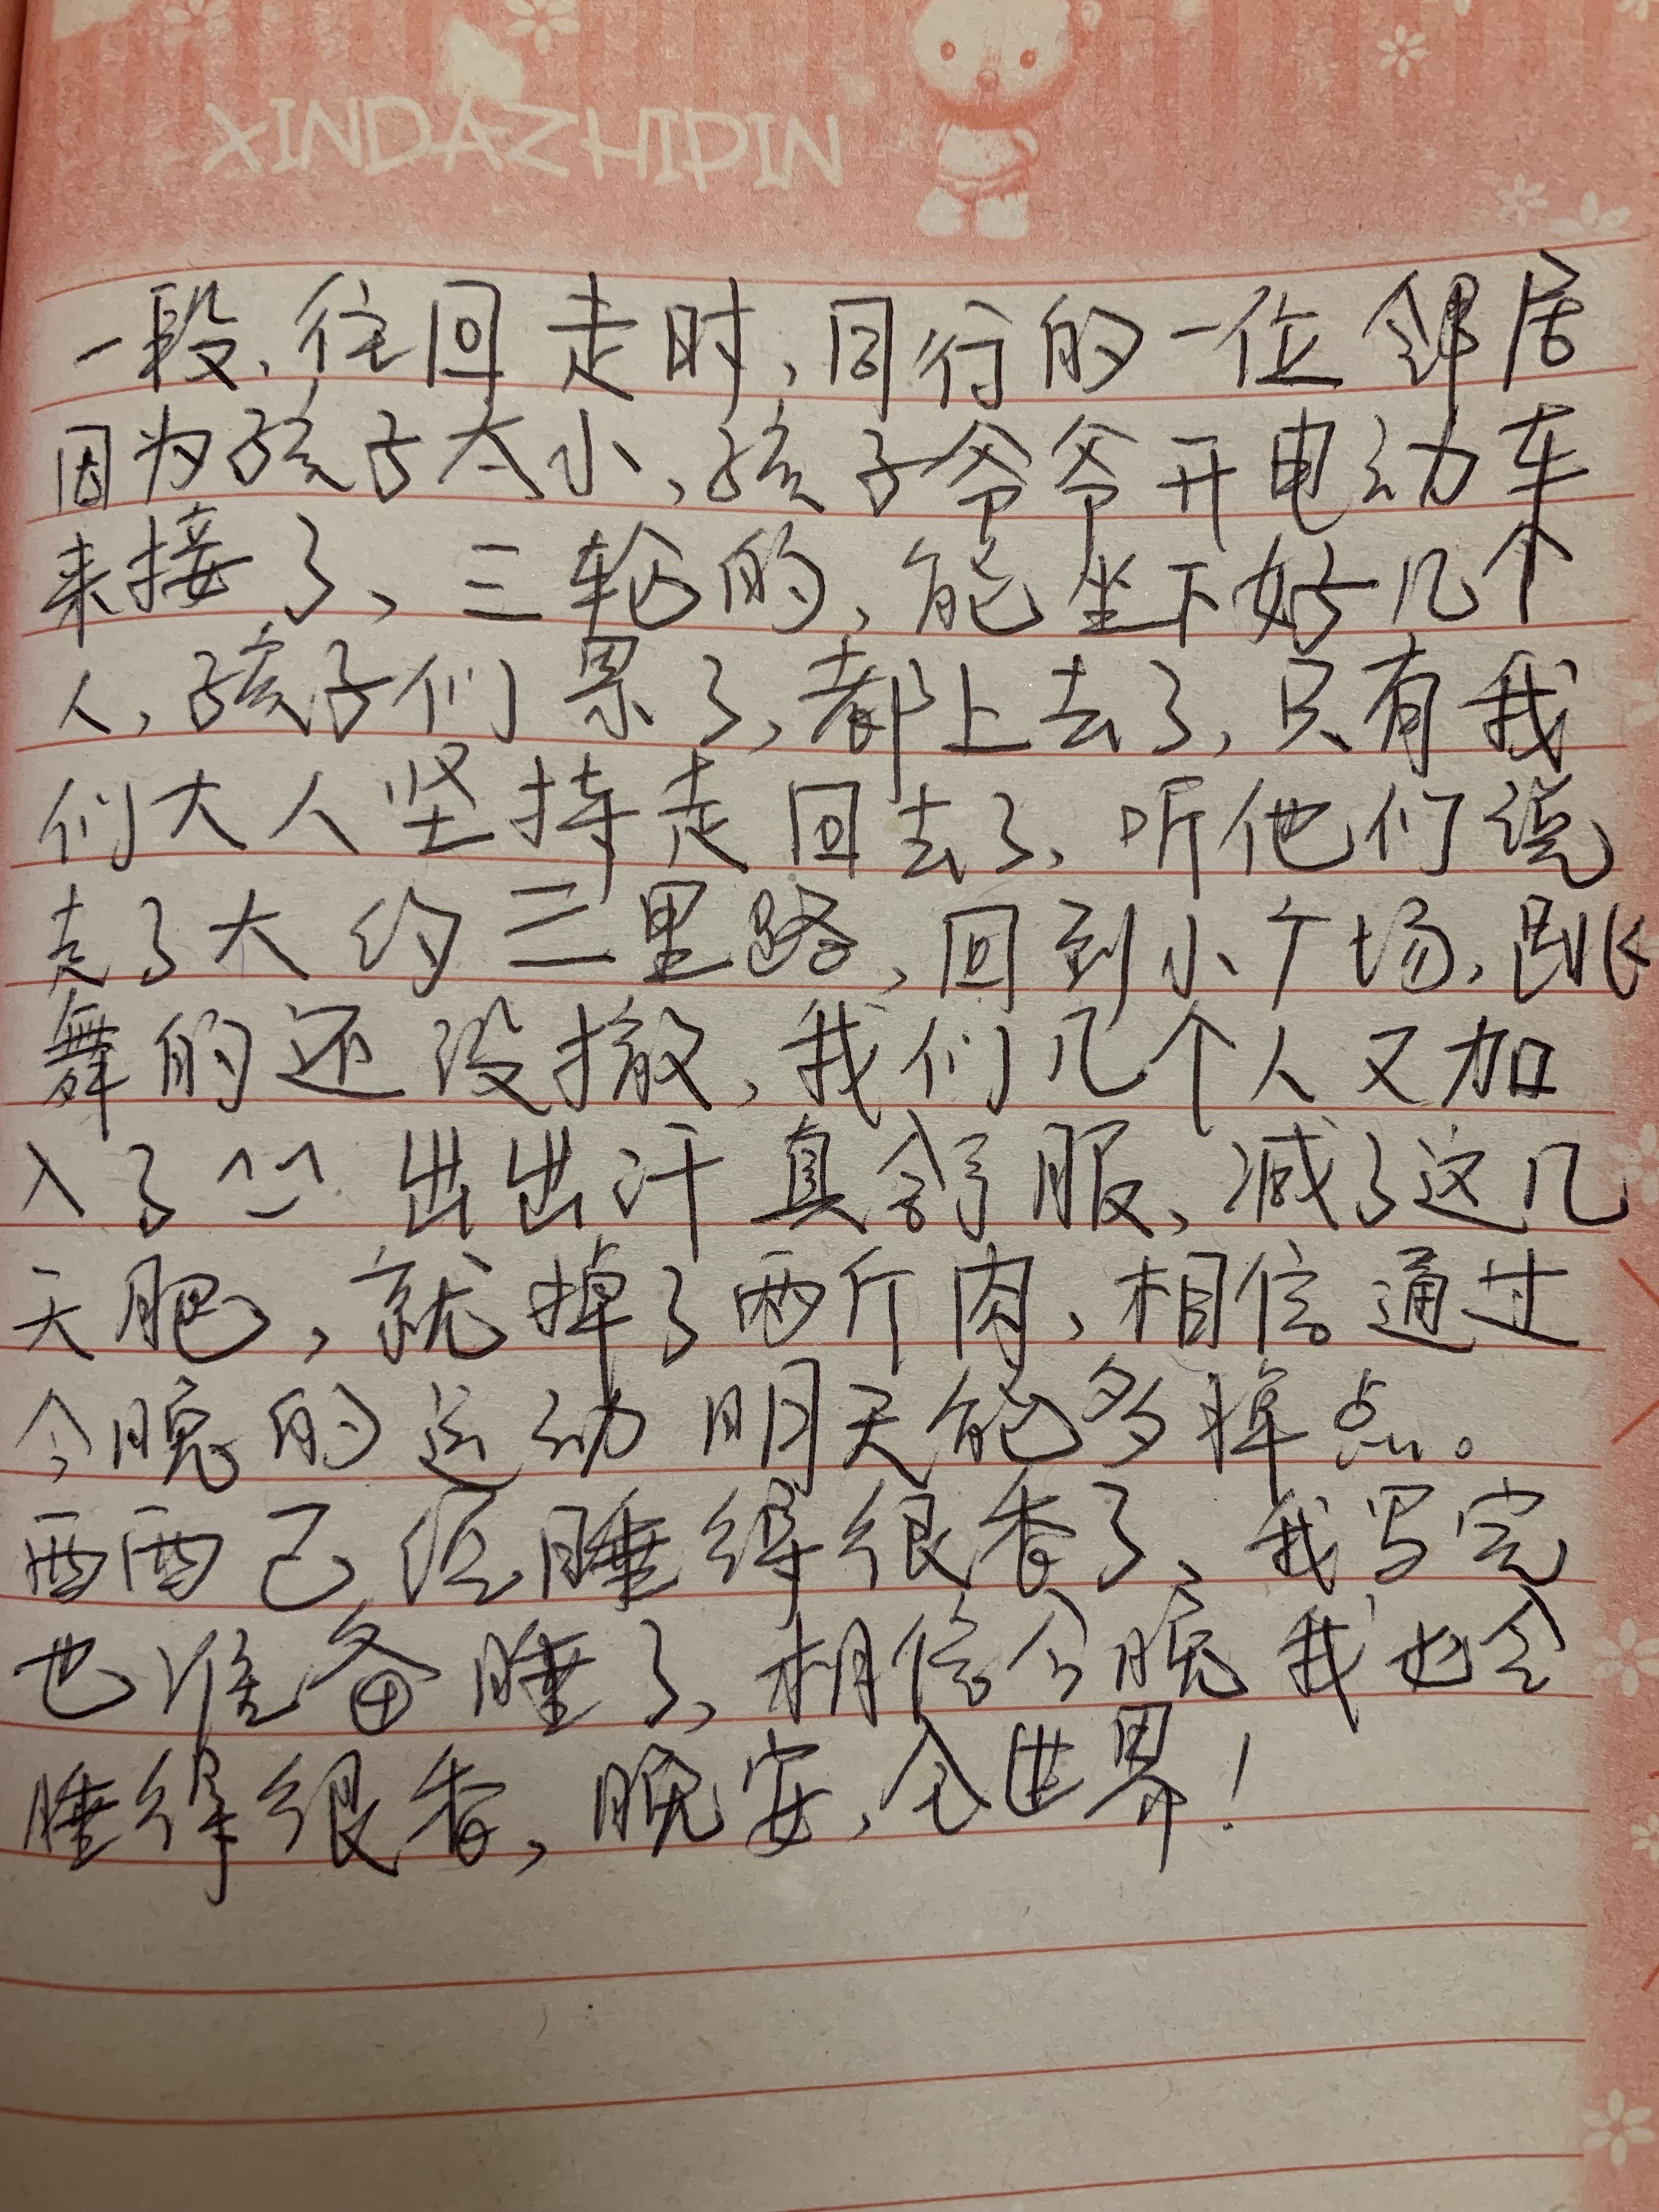 XINDAZHIPIN
一段,往回走时,同行的一位邻居
因为孩子太小,孩子爷爷开电动车
来接了,三轮的,能坐下好几个
人,孩子们累了,都上去了,只有我
们大人坚持走回去了,听他们说
走了大约三里路,回到小广场,跳
舞的还没撤,我们几个人又加
入了^_^ 出出汗真舒服,减了这几
天肥,就掉了两斤肉,相信通过
今晚的运动明天能多掉点。
西西已经睡得很香了,我写完
也准备睡了,相信今晚我也会
睡得很香,晚安,全世界!